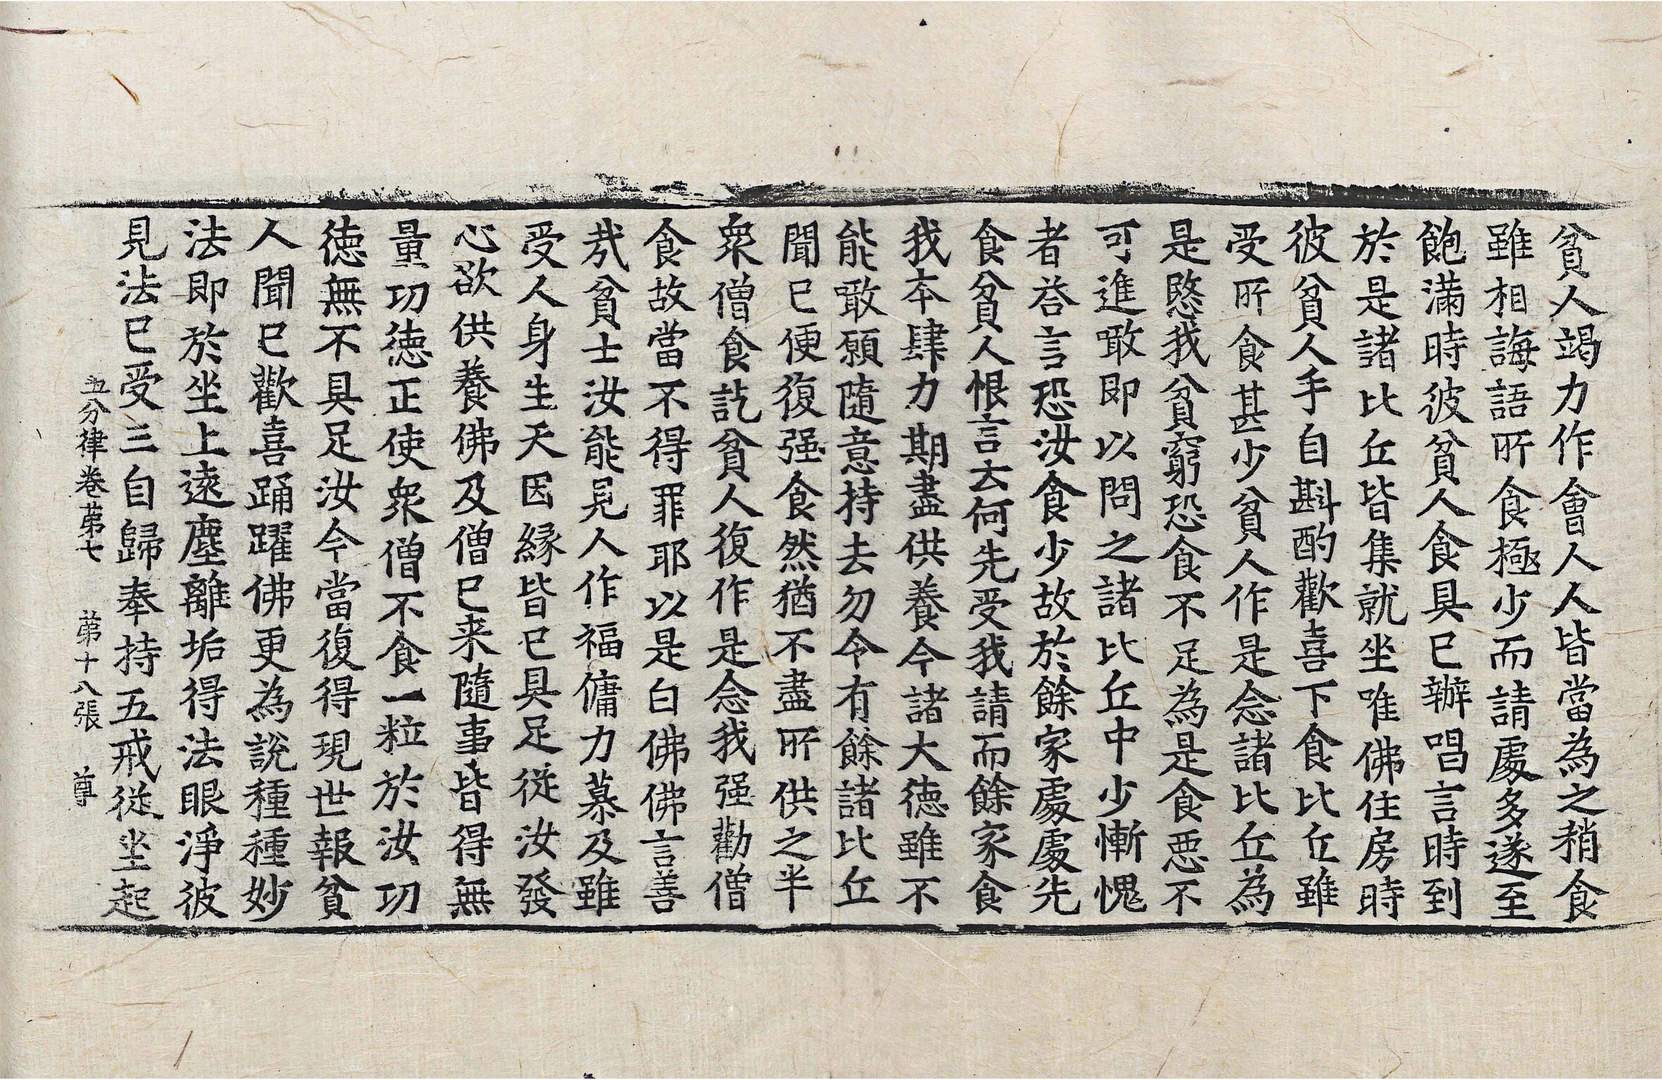 貧人竭力作會人人皆當為之稍食
雖相誨語所食極少而請處多遂至
飽滿時彼貧人食具已辦唱言時到
於是諸比丘皆集就坐唯佛住房時
彼貧人手自斟酌歡喜下食比丘雖
受所食甚少貧人作是念諸比丘為
是愍我貧窮恐食不足為是食惡不
可進噉即以問之諸比丘中少慚愧
者荅言恐汝食少故於餘家處處先
食貧人恨言云何先受我請而餘家食
我本肆力期盡供養今諸大德雖不
能噉願隨意持去勿令有餘諸比丘
聞已便復强食然猶不盡所供之半
衆僧食訖貧人復作是念我强勸僧
食故當不得罪耶以是白佛佛言善
㢤貧士汝能見人作福傭力慕及雖
受人身生天因縁皆已具足從汝發
心欲供養佛及僧已来隨事皆得無
量功徳正使衆僧不食一粒於汝功
徳無不具足汝今當復得現世報貧
人聞已歡喜踊躍佛更為說種種妙
法即於坐上遠塵離垢得法眼淨彼
見法已受三自歸奉持五戒從坐起
五分律卷苐七　苐十八張　尊